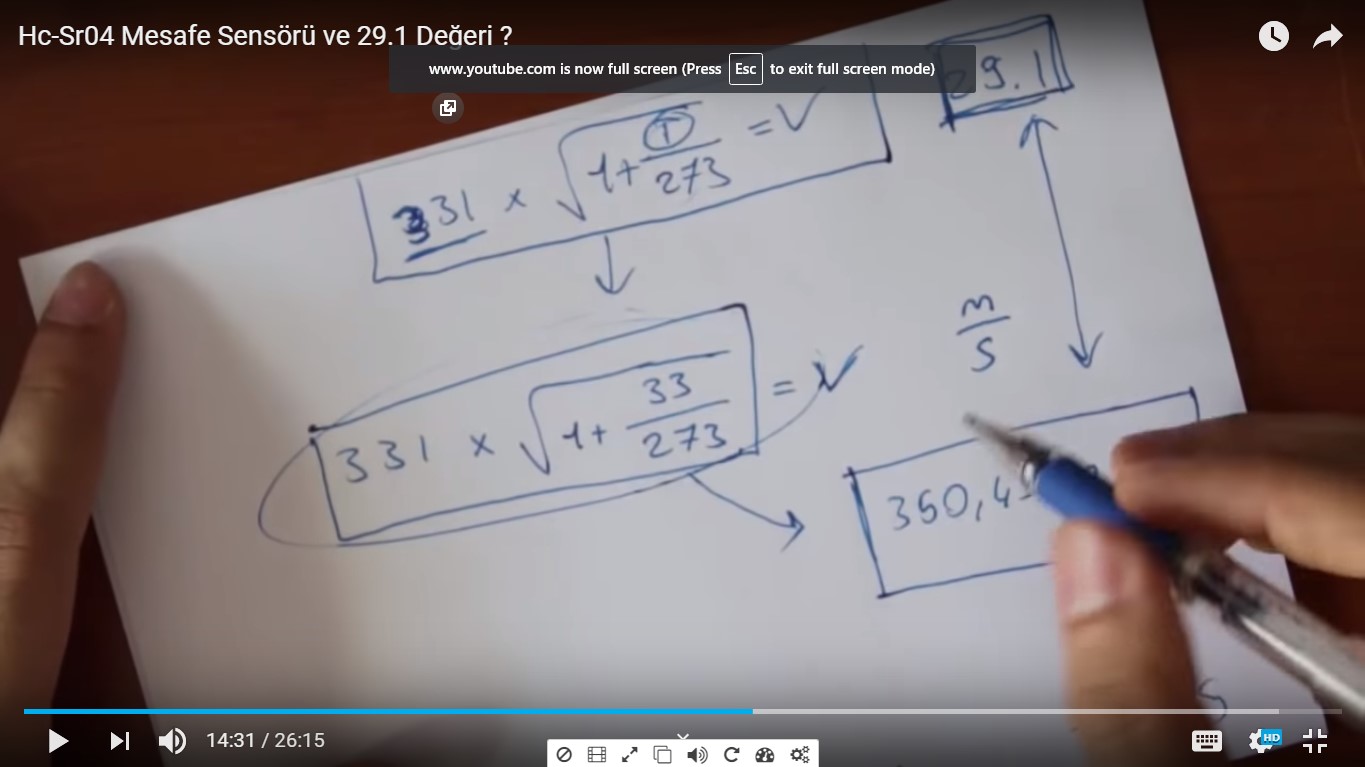 Hc-Sr04 Mesafe Sensörü ve 29.1 Değeri ?
www.youtube.com is now full screen (Press Esc to exit full screen mode)
29.1
331 x √1+T/273 = V
m/s
331 x √1+33/273 = V
350,4
s
14:31 / 26:15
HD